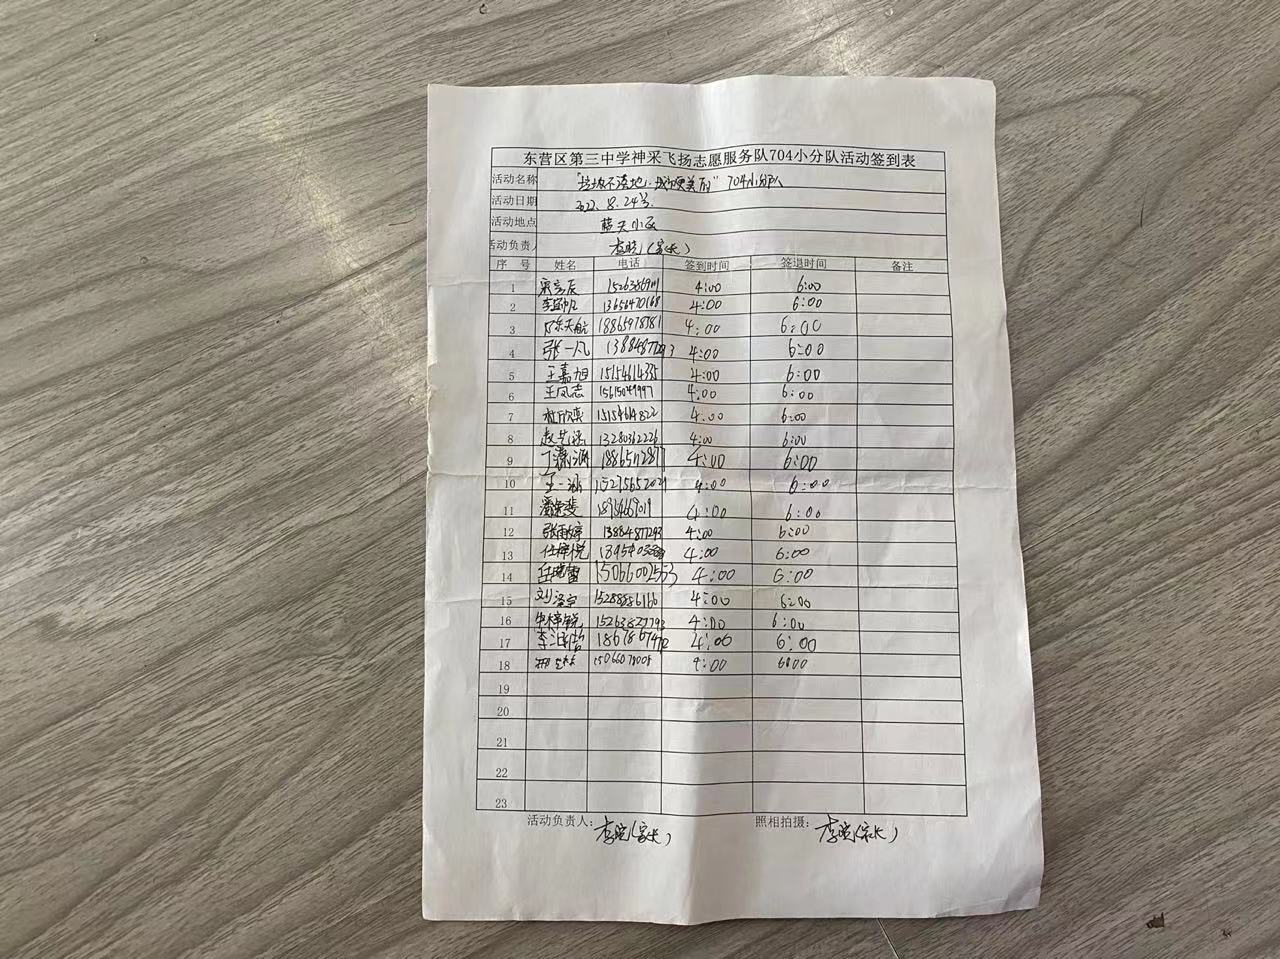 东营区第三中学神采飞扬志愿服务队704小分队活动签到表
活动名称 "垃圾不落地,城市更美丽" 704小分队
活动日期 2022.8.24号
活动地点 蓝天小区
活动负责人 李晓(家长)
序 号 姓名 电话 签到时间 签退时间 备注
1 4:00 6:00
2 13656470168 4:00 6:00
3 陈天航 18865978781 4:00 6:00
4 张一凡 13884877293 4:00 6:00
5 王嘉旭 15154614335 4:00 6:00
6 王凤志 15615049997 4:00 6:00
7 杜欣奕 4:00 6:00
8 赵艺涵 13280362226 4:00 6:00
9 4:00 6:00
10 王一涵 15275652029 4:00 6:00
11 4:00 6:00
12 张雨婷 13884877293 4:00 6:00
13 任梓悦 4:00 6:00
14 任晓雷 15066002553 4:00 6:00
15 刘泽宇 15288886166 4:00 6:00
16 15263827793 4:00 6:00
17 4:00 6:00
18 4:00 6:00
19
20
21
22
23
活动负责人: 李晓(家长) 照相拍摄: 李晓(家长)